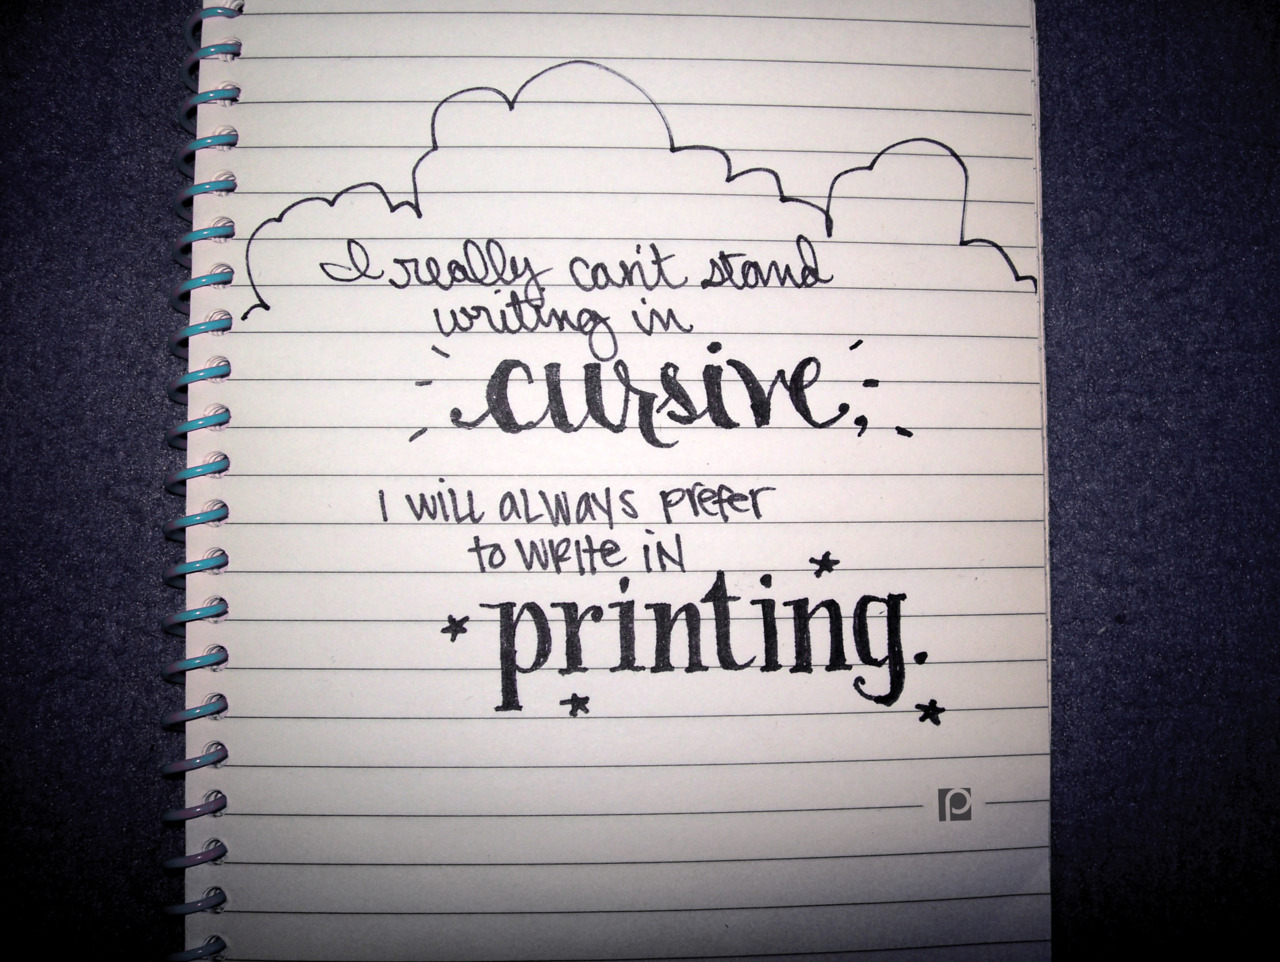 I really can't stand
writing in
cursive,
I will always prefer
to write in
printing.